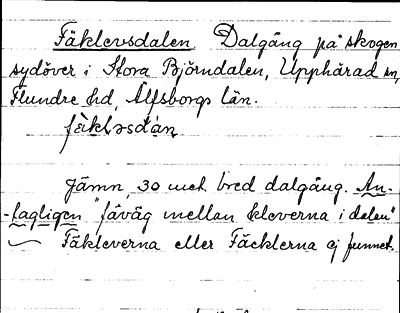 Fäklevsdalen Dalgång på skogen
sydöver i Stora Björndalen, Upphärad sn,
Flundre hd, Älfsborgs län.
fä̀kləsdàn
Jämn, 30 met. bred dalgång. An-
-tagligen "fäväg mellan kleverna i dalen"
Fäkleverna eller Fäcklerna ej funnet.